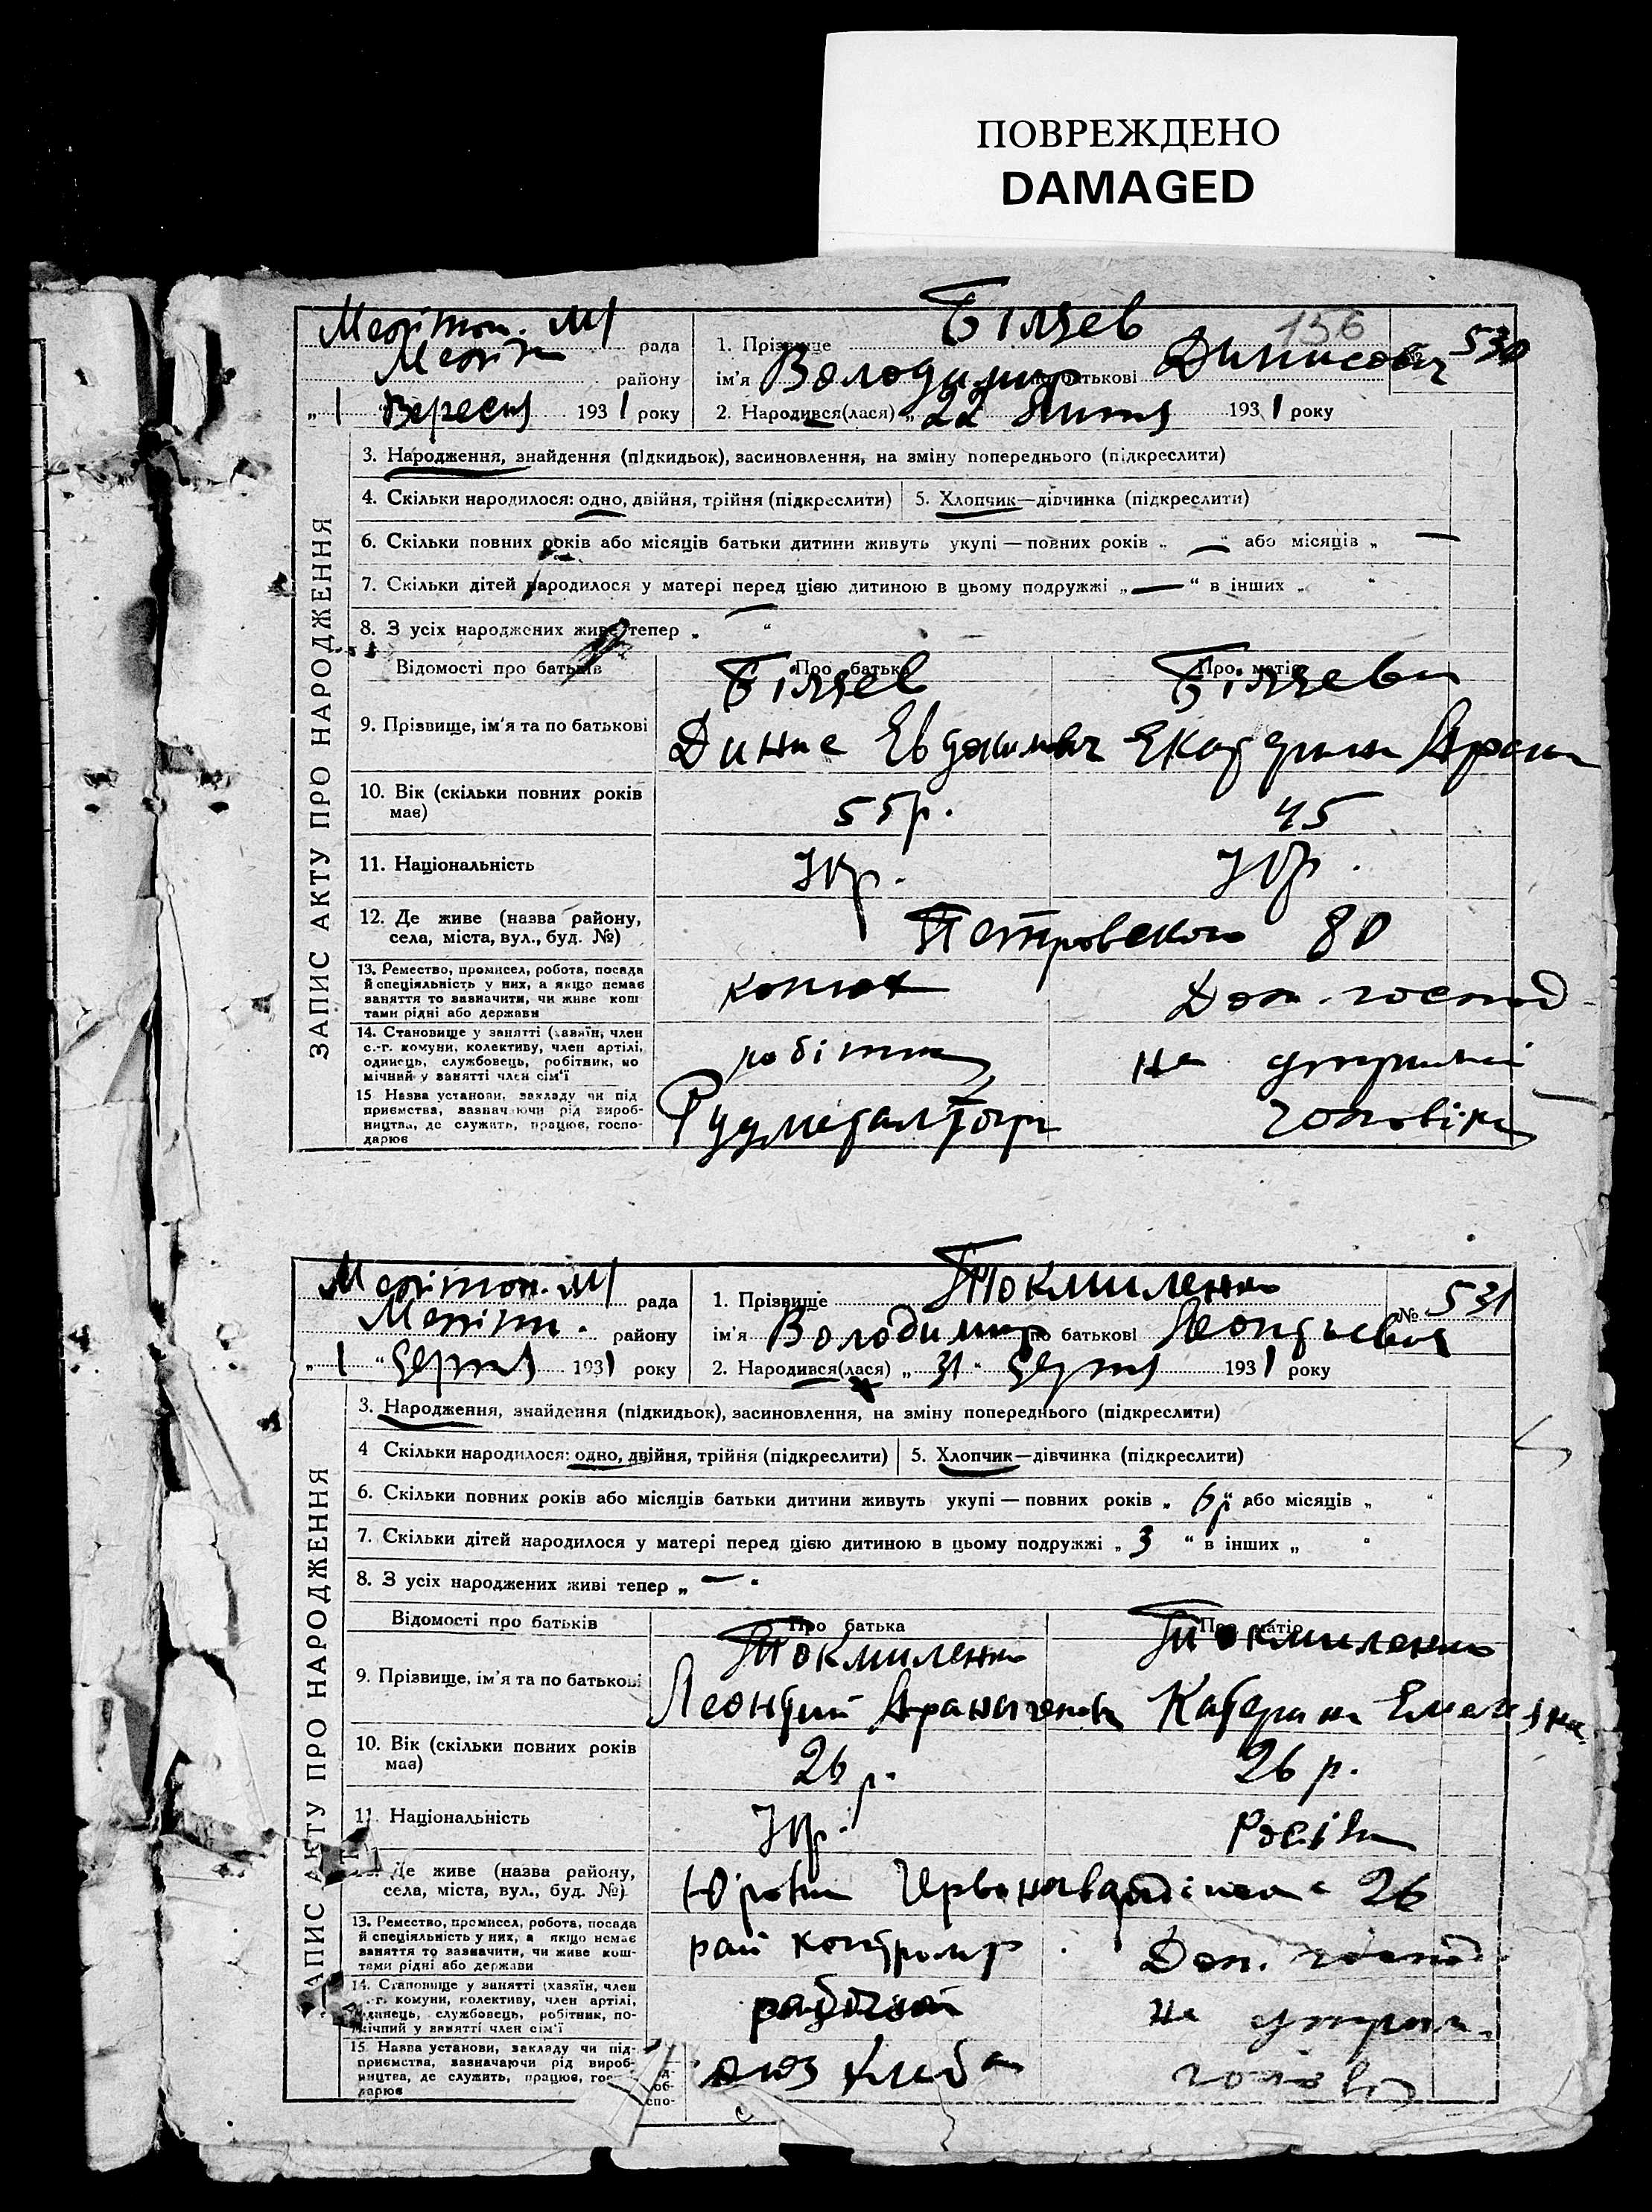 ПОВРЕЖДЕНО
DAMAGED
156
рада 1. Прізвище Біляєв 530
району ім'я Володимир по батькові Динисович
„1 Вересня 1931 року 2. Народився(лася) „22 1931 року
ЗАПИС АКТУ ПРО НАРОДЖЕННЯ
3. Народження, знайдення (підкидьок), засиновлення, на зміну попереднього (підкреслити)
4. Скільки народилося: одно, двійня, трійня (підкреслити) 5. Хлопчик—дівчинка (підкреслити)
6. Скільки повних років або місяців батьки дитини живуть укупі — повних років „ — “ або місяців „ —
7. Скільки дітей народилося у матері перед цією дитиною в цьому подружжі „ — “ в інших „ “
8. З усіх народжених живе тепер „ — “
Відомості про батьків Про батька Про матір
Біляєв
9. Прізвище, ім'я та по батькові
Динис
10. Вік (скільки повних років має) 55 р. 45
11. Національність Укр. Укр.
12. Де живе (назва району, села, міста, вул., буд. №) Петровского 80
13. Ремество, промисел, робота, посада
й спеціяльність у них, а якщо немає
заняття то зазначити, чи живе кош-
тами рідні або держави
конюх Дом. господ
14. Становище у занятті (хазяїн, член
с.-г. комуни, колективу, член артілі,
одинець, службовець, робітник, по
мічний у занятті член сім'ї
робітник на утриманні
15 Назва установи, закладу чи під
приємства, зазначаючи рід вироб-
ництва, де служить, працює, госпо-
дарює
Рудметалторг чоловіка
рада 1. Прізвище Токмиленко № 531
району ім'я Володимир по батькові Леонтьевич
„1“ Серпня 1931 року 2. Народився(лася) „31“ Серпня 1931 року
ЗАПИС АКТУ ПРО НАРОДЖЕННЯ
3. Народження, знайдення (підкидьок), засиновлення, на зміну попереднього (підкреслити)
4 Скільки народилося: одно, двійня, трійня (підкреслити) 5. Хлопчик—дівчинка (підкреслити)
6. Скільки повних років або місяців батьки дитини живуть укупі — повних років „ 6р “ або місяців „ “
7. Скільки дітей народилося у матері перед цією дитиною в цьому подружжі „ 3 “ в інших „ “
8. З усіх народжених живі тепер „ — “
Відомості про батьків Про батька Про матір
Токмиленко Токмиленко
9. Прізвище, ім'я та по батькові
Леонтий Катерина
10. Вік (скільки повних років має) 26 р. 26 р.
11. Національність Укр.
Де живе (назва району, села, міста, вул., буд. №) 26
13. Ремество, промисел, робота, посада
й спеціяльність у них, а якщо немає
заняття то зазначити, чи живе кош-
тами рідні або держави
рай контролер Дом. господ
14. Становище у занятті (хазяїн, член
с.-г. комуни, колективу, член артілі,
одинець, службовець, робітник, по-
мічний у занятті член сім'ї
на утрим.
15. Назва установи, закладу чи під-
приємства, зазначаючи рід вироб-
ництва, де служить, працює, гос
дарює
союз хлеб